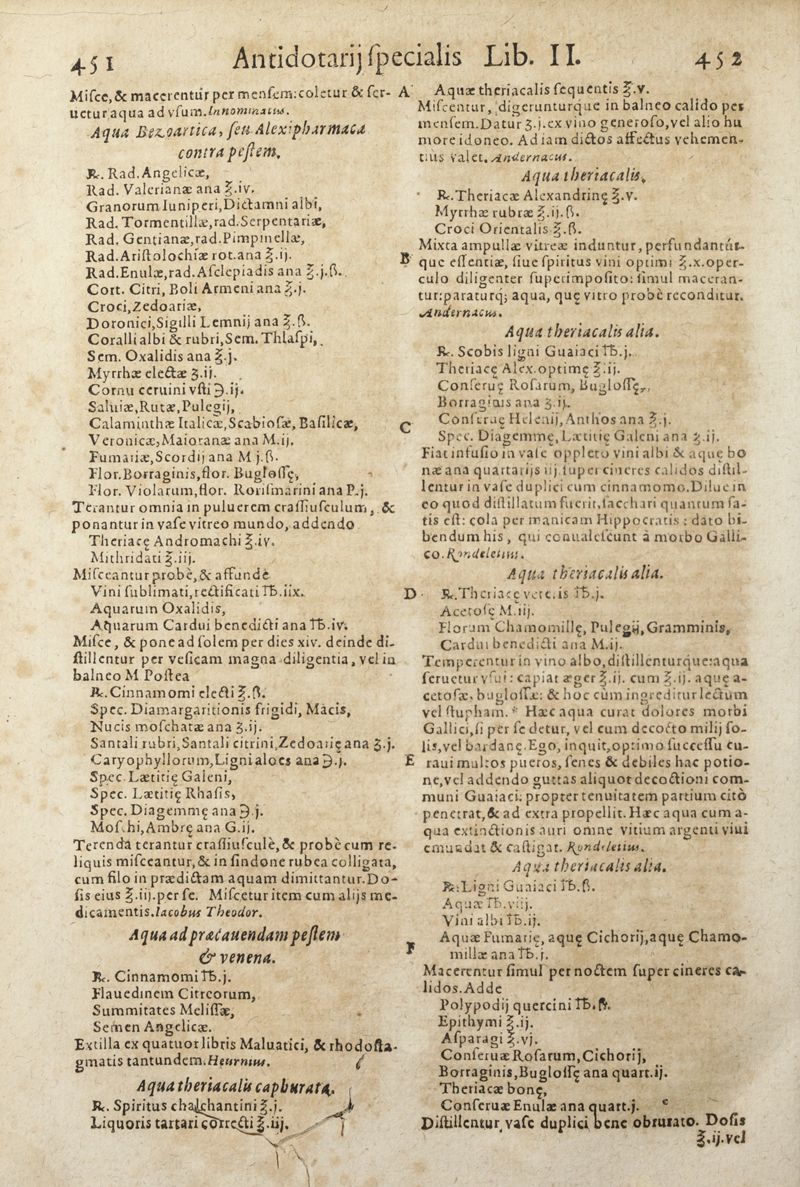 451
Antidotarij specialis Lib. II.
452
Misce, & macerentur per mensem: coletur & ser-
uetur aqua ad vsum. Innominatus.
Aqua Bezoartica, seu Alexipharmaca
contra pestem.
℞. Rad. Angelicæ,
Rad. Valerianæ ana ℥.iv.
Granorum Iuniperi, Dictamni albi,
Rad. Tormentillæ, rad. Serpentariæ,
Rad. Gentianæ, rad. Pimpinellæ,
Rad. Aristolochiæ rot. ana ℥.ij.
Rad. Enulæ, rad. Asclepiadis ana ℥.j.ß.
Cort. Citri, Boli Armeni ana ℥.j.
Croci, Zedoariæ,
Doronici, Sigilli Lemnij ana ℥.ß.
Coralli albi & rubri, Sem. Thlaspi,
Sem. Oxalidis ana ℥.j.
Myrrhæ electæ ʒ.ij.
Cornu ceruini vsti ℈.ij.
Saluiæ, Rutæ, Pulegij,
Calaminthæ Italicæ, Scabiosæ, Basilicæ,
Veronicæ, Maioranæ ana M.ij.
Fumariæ, Scordij ana M j.ß.
Flor. Borraginis, flor. Buglossę,
Flor. Violarum, flor. Rorismarini ana P.j.
Terantur omnia in puluerem crassiusculum, &
ponantur in vase vitreo mundo, addendo
Theriacę Andromachi ℥.iv.
Mithridati ℥.iij.
Misceantur probè, & affunde
Vini sublimati, rectificati ℔.iix.
Aquarum Oxalidis,
Aquarum Cardui benedicti ana ℔.iv.
Misce, & pone ad solem per dies xiv. deinde di-
stillentur per vesicam magna diligentia, vel in
balneo M Postea
℞. Cinnamomi electi ℥.ß.
Spec. Diamargaritionis frigidi, Macis,
Nucis moschatæ ana ʒ.ij.
Santali rubri, Santali citrini, Zedoarię ana ʒ.j.
Caryophyllorum, Ligni aloes ana ℈.j.
Spec. Lætitię Galeni,
Spec. Lætitię Rhasis,
Spec. Diagemmę ana ℈ j.
Moschi, Ambrę ana G.ij.
Terenda terantur crassiusculè, & probè cum re-
liquis misceantur, & in sindone rubea colligata,
cum filo in prædictam aquam dimittantur. Do-
sis eius ℥.iij. per se. Miscetur item cum alijs me-
dicamentis. Iacobus Theodor.
Aqua ad præcauendam pestem
& venena.
℞. Cinnamomi ℔.j.
Flauedinem Citreorum,
Summitates Melissæ,
Semen Angelicæ.
Extilla ex quatuor libris Maluatici, & rhodosta-
gmatis tantundem. Heurnius.
Aqua theriacalis caphurata.
℞. Spiritus chalchantini ℥.j.
Liquoris tartari correcti ℥.iij.
A Aquæ theriacalis sequentis ℥.v.
Misceantur, digerunturque in balneo calido per
mensem. Datur ʒ.j. ex vino generoso, vel alio hu
more idoneo. Ad iam dictos affectus vehemen-
tius valet. Andernacus.
Aqua theriacalis.
℞. Theriacæ Alexandrinę ℥.v.
Myrrhæ rubræ ℥.ij.ß.
Croci Orientalis ℥.ß.
Mixta ampullæ vitreæ induntur, perfundantúr-
B que essentiæ, siue spiritus vini optimi ℥.x. oper-
culo diligenter superimposito: simul maceran-
tur: paraturq; aqua, quę vitro probè reconditur.
Andernacus.
Aqua theriacalis alia.
℞. Scobis ligni Guaiaci ℔.j.
Theriacę Alex. optimę ℥.ij.
Conseruę Rosarum, Buglossę,
Borraginis ana ʒ.ij.
C Conseruę Helenij, Anthos ana ℥.j.
Spec. Diagemmę, Lætitię Galeni ana ʒ.ij.
Fiat infusio in vase oppleto vini albi & aquę bo
næ ana quartarijs iij. super cineres calidos distil-
lentur in vase duplici cum cinnamomo. Dilue in
eo quod distillatum fuerit, sacchari quantum sa-
tis est: cola per manicam Hippocratis: dato bi-
bendum his, qui conualescunt à morbo Galli-
co. Rondeletius.
Aqua theriacalis alia.
D ℞. Theriacę veteris ℔.j.
Acetosę M.iij.
Florum Chamomillę, Pulegij, Gramminis,
Cardui benedicti ana M.ij.
Temperentur in vino albo, distillenturque: aqua
seruetur vsui: capiat æger ℥.ij. cum ℥.ij. aquę a-
cetosæ, buglossæ: & hoc cùm ingreditur lectum
vel stupham. Hæc aqua curat dolores morbi
Gallici, si per se detur, vel cum decocto milij so-
lis, vel bardanę. Ego, inquit, optimo successu cu-
E raui multos pueros, senes & debiles hac potio-
ne, vel addendo guttas aliquot decoctioni com-
muni Guaiaci: propter tenuitatem partium citò
penetrat, & ad extra propellit. Hæc aqua cum a-
qua extinctionis auri omne vitium argenti viui
emundat & castigat. Rondeletius.
Aqua theriacalis alia.
℞. Ligni Guaiaci ℔.ß.
Aquæ ℔.viij.
Vini albi ℔.ij.
Aquæ Fumarię, aquę Cichorij, aquę Chamo-
F millæ ana ℔.j.
Macerentur simul per noctem super cineres ca-
lidos. Adde
Polypodij quercini ℔.ß.
Epithymi ℥.ij.
Asparagi ℥.vj.
Conseruæ Rosarum, Cichorij,
Borraginis, Buglossę ana quart.ij.
Theriacæ bonę,
Conseruæ Enulæ ana quart.j.
Distillentur vase duplici bene obturato. Dosis
℥.ij. vel